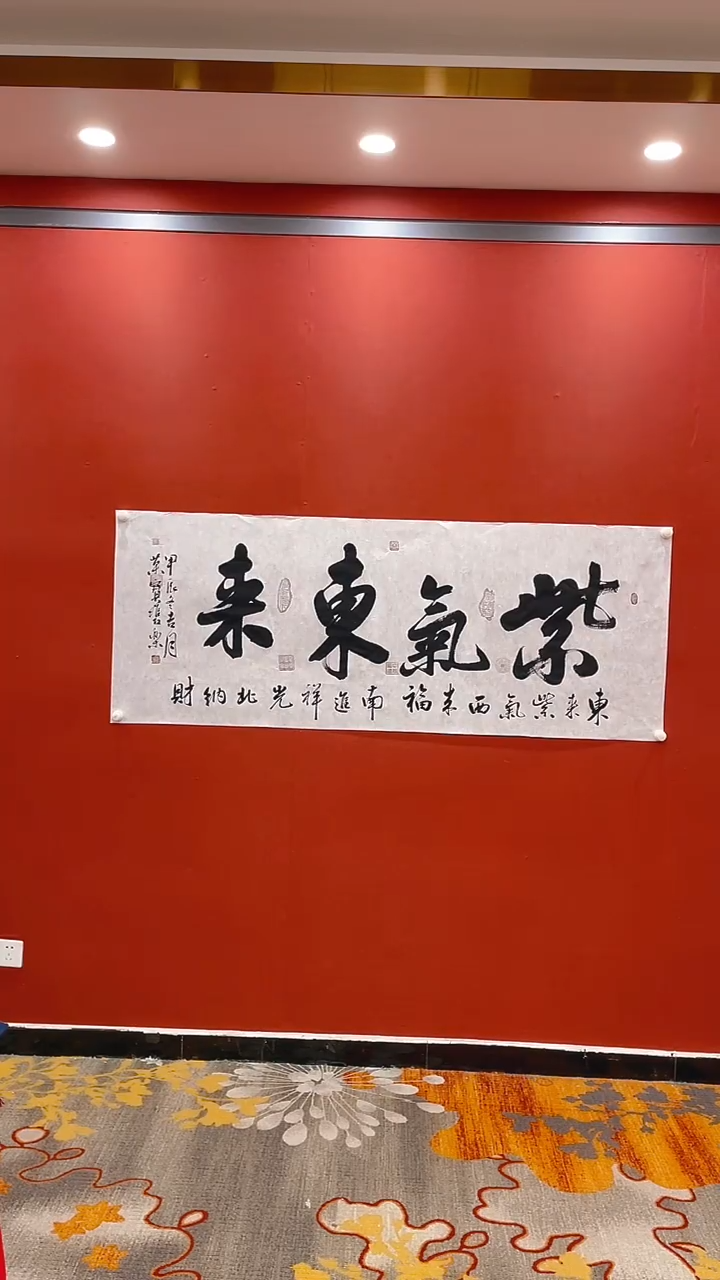 紫氣東来
東来紫氣西来福 南進祥光北納財
甲辰冬吉月